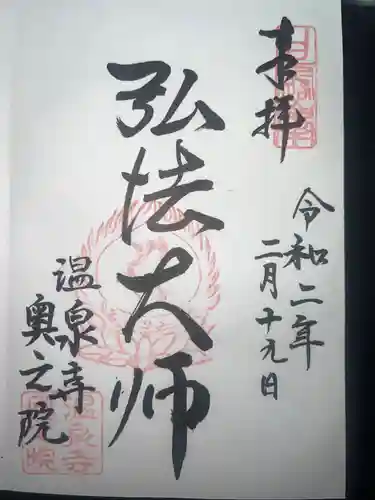 奉拝
令和二年
二月十九日
弘法大师
温泉寺
奥之院
温泉寺